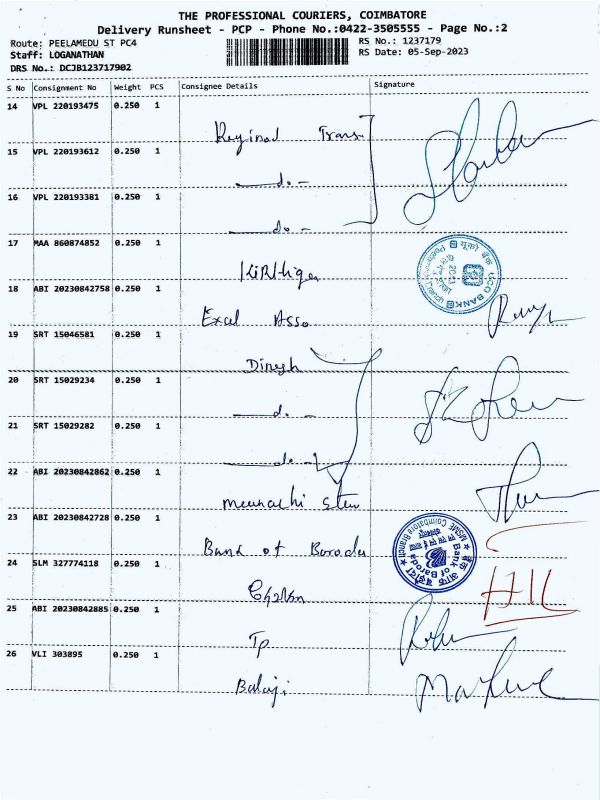 THE PROFESSIONAL COURIERS, COIMBATORE
Delivery Runsheet - PCP - Phone No.:0422-3505555 - Page No.:2
Route: PEELAMEDU ST PC4
RS No.: 1237179
Staff: LOGANATHAN
RS Date: 05-Sep-2023
DRS No.: DCJB123717902
S No Consignment No Weight PCS Consignee Details Signature
14 VPL 220193475 0.250 1
Trans
15 VPL 220193612 0.250 1
do -
16 VPL 220193381 0.250 1
do -
17 MAA 860874852 0.250 1
UCO BANK
18 ABI 20230842758 0.250 1
Excel Asso
19 SRT 15046581 0.250 1
Dinesh
20 SRT 15029234 0.250 1
do -
21 SRT 15029282 0.250 1
do -
22 ABI 20230842862 0.250 1
Meenachi
23 ABI 20230842728 0.250 1
Bank of Baroda
MSME Coimbatore Branch
बैंक ऑफ़ बड़ौदा
Bank of Baroda
24 SLM 327774118 0.250 1
25 ABI 20230842885 0.250 1
Tp
26 VLI 303895 0.250 1
Balaji